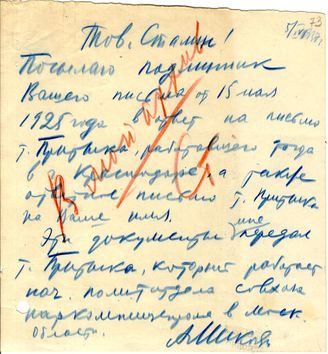 73
Тов. Сталин!
Посылаю подлинник
Вашего письма от 15 мая
1925 года в ответ на письмо
т. Притыка, работавшего тогда
в г. Краснодаре, а также
ответное письмо т. Притыка
на Ваше имя.
мне
Эти документы передал
т. Притыка, который работает
нач. политотдела совхоза
наркомпищепрома в Моск.
области.
В мой архив